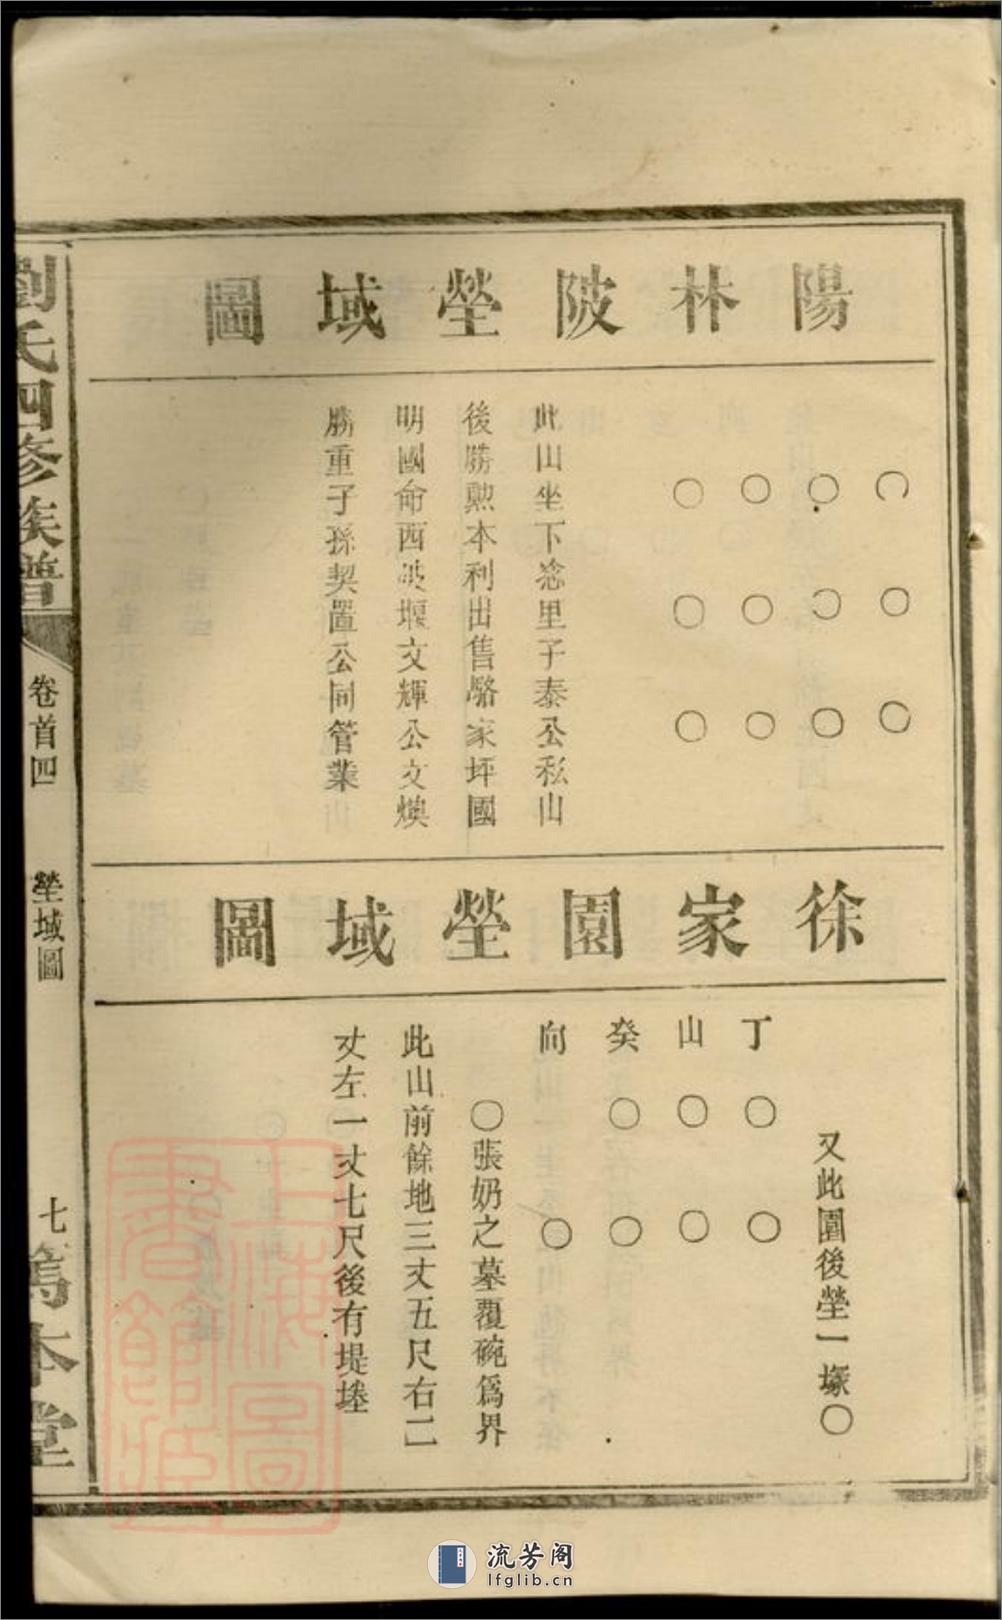 陽林陂塋域圖
〇〇〇
〇〇〇
〇〇〇
〇〇〇
此山坐下淰里子泰公私山
後勝勲本利出售駱家坪國
明國命西坡堰文輝公文煥
勝重子孫契置公同管業
徐家園塋域圖
又此園後塋一塚〇
丁〇〇
山〇〇
癸〇〇
向〇
〇張奶之墓覆碗爲界
此山前餘地三丈五尺右二
丈左一丈七尺後有堤墶
劉氏四修族譜
卷首四
塋域圖
七
篤本堂
上海圖書館藏
流芳阁
lfglib.cn